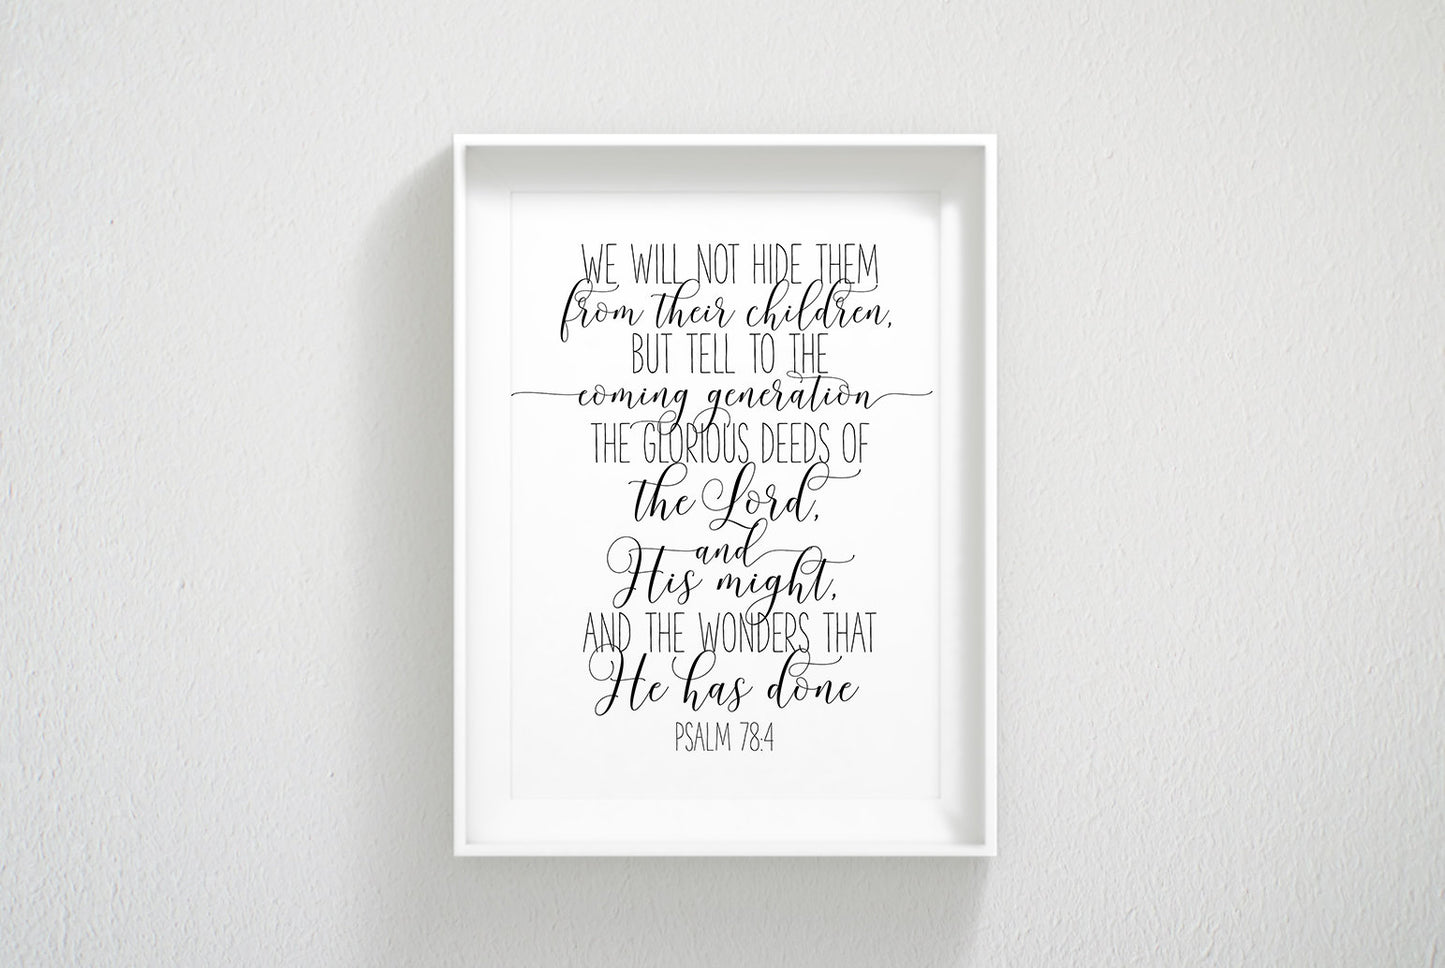 WE WILL NOT HIDE THEM
from their children,
BUT TELL TO THE
coming generation
THE GLORIOUS DEEDS OF
the Lord,
and
His might,
AND THE WONDERS THAT
He has done
PSALM 78:4